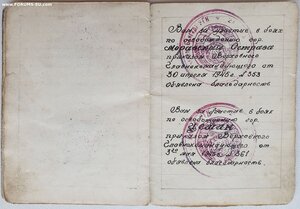 www.FORUMS-SU.com
Вам за участие в боях
по освобождению гор.
Моравская Острава
приказом Верховного
Главнокомандующего от
30 апреля 1945г. №353
объявлена благодарность
Вам за участие в боях
по освобождению гор.
приказом Верховного
Главнокомандующего от
3го мая 1945г. №361
объявлена благодарность